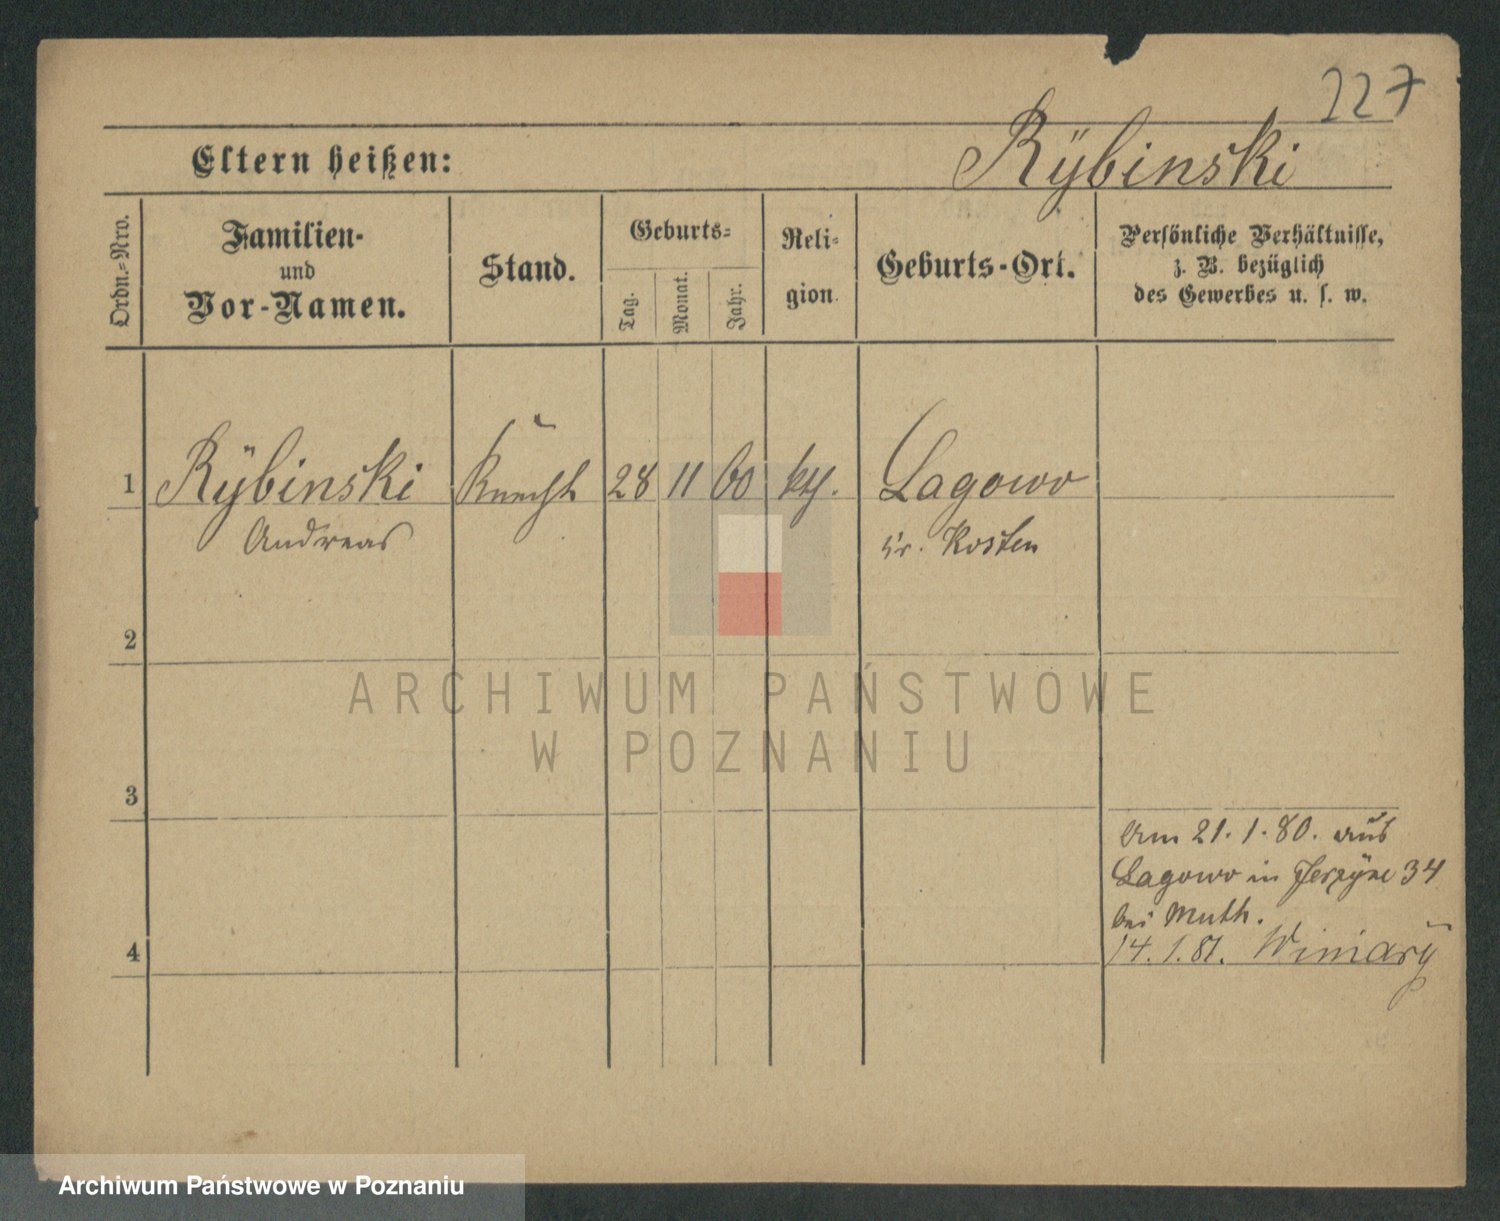 227
Rÿbinski
Eltern heißen:
Ordn.-Nro.
Familien-
und
Vor-Namen.
Stand.
Geburts-
Tag.
Monat.
Jahr.
Reli-
gion.
Geburts-Ort.
Persönliche Verhältnisse,
z. B. bezüglich
des Gewerbes u. s. w.
1 Rÿbinski Knecht 28 11 60 kth. Lagowo
Andreas Kr. Kosten
2
3
4
Am 21.1.80. aus
Lagowo in Jerzÿce 34
bei Muth.
14.1.81. Winiarÿ
ARCHIWUM PAŃSTWOWE
W POZNANIU
Archiwum Państwowe w Poznaniu